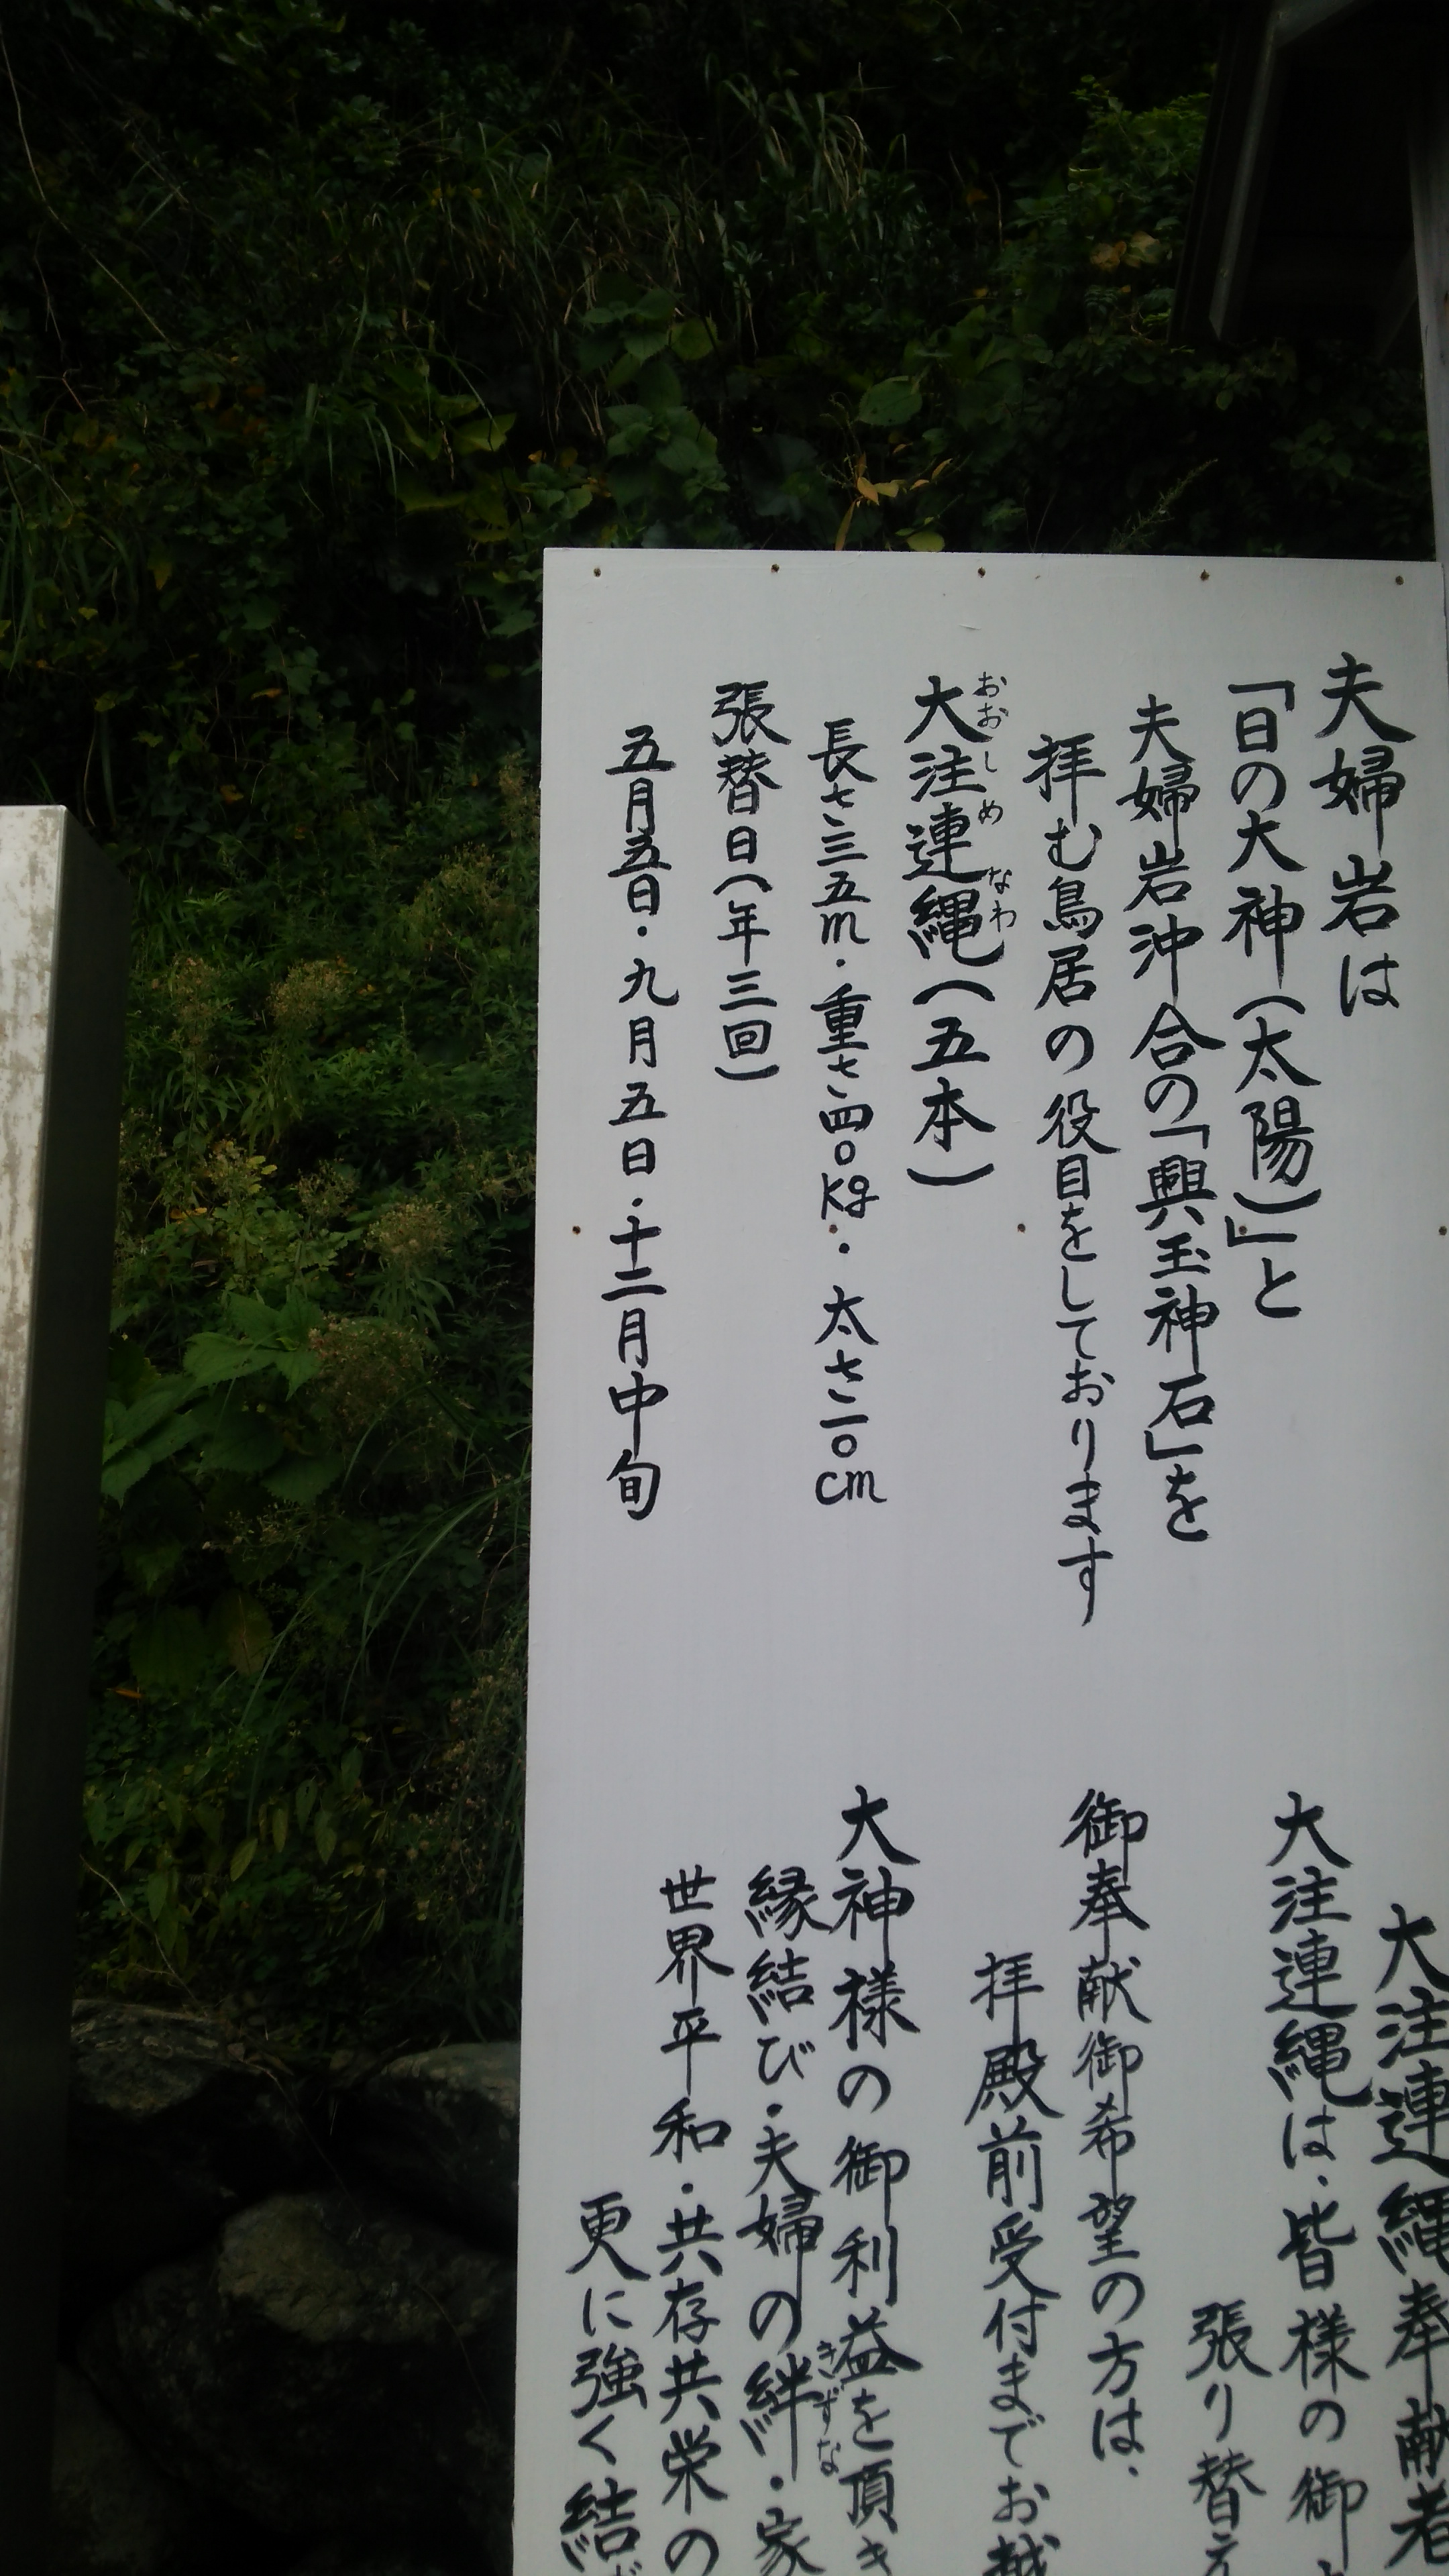 夫婦岩は
「日の大神(太陽)」と
夫婦岩沖合の「興玉神石」を
拝む鳥居の役目をしております
大注連縄(五本)
おおしめなわ
長さ三五m・重さ四〇kg・太さ一〇cm
張替日(年三回)
五月五日・九月五日・十二月中旬
大注連縄奉献者
大注連縄は、皆様の御
張り替え
御奉献御希望の方は、
拝殿前受付までお越
大神様の御利益を頂き
縁結び・夫婦の絆・家
きずな
世界平和・共存共栄の
更に強く結